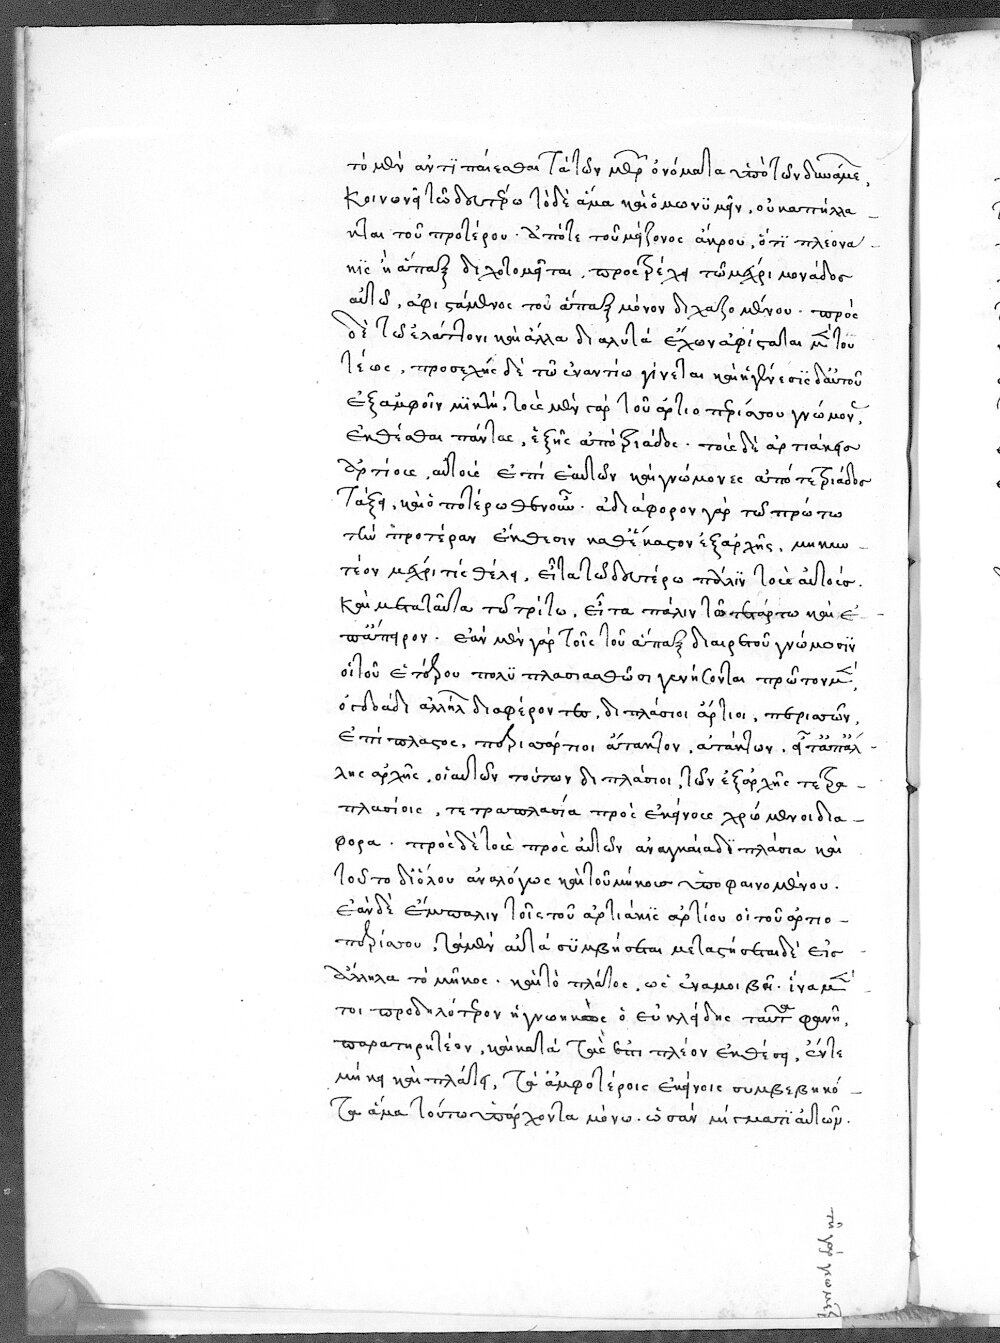 τὸ μὲν ἀντιπάσεσθαι τὰ τῶν μερῶν ὀνόματα ὑπὸ τῶν δυνάμε,
κοινωνεῖ τῷ δευτέρῳ τὸ δὲ ἅμα καὶ ὁμωνυμεῖν, οὐκ ἀπήλλα-
κται τοῦ προτέρου. ἀπό τε τοῦ μείζονος ἄκρου, ὅτι πλεονα-
κις ἢ ἅπαξ διχοτομεῖται, προστρέχει τῷ μέχρι μονάδος
αὐτῷ, ἀφιστάμενος τοῦ ἅπαξ μόνον διχαζομένου. πρὸς
δὲ τῷ ἐλάττονι καὶ ἄλλα διαλυτὰ ἔχων ἀφίσταται μὲν τοῦ
τέως, προσεχὴς δὲ τῷ ἐναντίῳ γίνεται καὶ ἡ γένεσις δ' αὐτοῦ
ἐξ ἀμφοῖν μικτή, τοὺς μὲν γὰρ τοῦ ἀρτιοπερίσσου γνώμον,
ἐκθέσθαι πάντας, ἑξῆς ἀπὸ τριάδος. τοὺς δὲ ἀρτιάκις
ἀρτίους, αὐτοὺς ἐπὶ ἑαυτῶν καὶ γνώμονες ἀπὸ τετράδος
τάξει, καὶ ὁποτέρωθεν οὖν. ἀδιάφορον γὰρ τῷ πρώτῳ
τὴν προτέραν ἔκθεσιν καθ' ἕκαστον ἐξαρχῆς, μηκυ-
τέον μέχρι τὶς θέλει, εἶτα τῷ δευτέρῳ πάλιν τοὺς αὐτούς.
καὶ μετὰ ταῦτα τῷ τρίτῳ, εἶτα πάλιν τῷ τετάρτῳ καὶ ἐ-
π' ἄπειρον. ἐὰν μὲν γὰρ τοῖς τοῦ ἅπαξ διαιρετοῦ γνώμοσιν
οἱ τοῦ ἑτέρου πολυπλασιασθῶσι γενήσονται πρῶτον μὲν,
ὀγδοάδι ἀλλήλων διαφέροντες, διπλάσιοι ἄρτιοι, περισσῶν,
ἐπὶ πλάτος, περισσάρτιοι ἄτακτον, ἀτάκτων.
λης ἀρχῆς, οἱ αὐτῶν τούτων διπλάσιοι, τῶν ἐξαρχῆς τετρα-
πλασίοις, τετραπλασία πρὸς ἐκείνους χρώμενοι δια-
φορᾷ. πρὸς δὲ τοὺς πρὸς αὐτῶν ἀναγκαία διπλάσια καὶ
τοῦτο διόλου ἀναλόγως καὶ τοῦ μήκους ὑποφαινομένου.
ἐὰν δὲ ἔμπαλιν τοῖς τοῦ ἀρτιάκις ἀρτίου οἱ τοῦ ἀρτιο-
περίσσου, τὰ μὲν αὐτὰ συμβήσεται μεταστήσεται δὲ εἰς
ἄλληλα τὸ μῆκος. καὶ τὸ πλάτος, ὡς ἕνα μοι βῆ. ἵνα μὲν
τοι προδηλότερον ἠγνωηκὼς ὁ εὐκλείδης ταύτῃ φανῇ,
παρατηρητέον, καὶ κατὰ τὰς ἐπιπλέον ἐκθέσει, ἔντε
μήκει καὶ πλάτει, τὰ ἀμφοτέροις ἐκείνοις συμβεβηκό-
τα ἅμα τούτῳ ὑπάρχοντα μόνῳ. ὡσὰν μίγματι αὐτῶν.